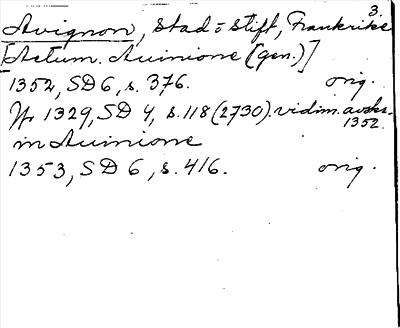 3.
Avignon, Stad o Stift, Frankrike
[Actum. Auinione (gen.)]
1352, SD 6, s. 376. orig.
Jfr 1329, SD 4, s. 118 (2730). vidim. avskr. 1352.
in Auinione
1353, SD 6, s. 416. orig.